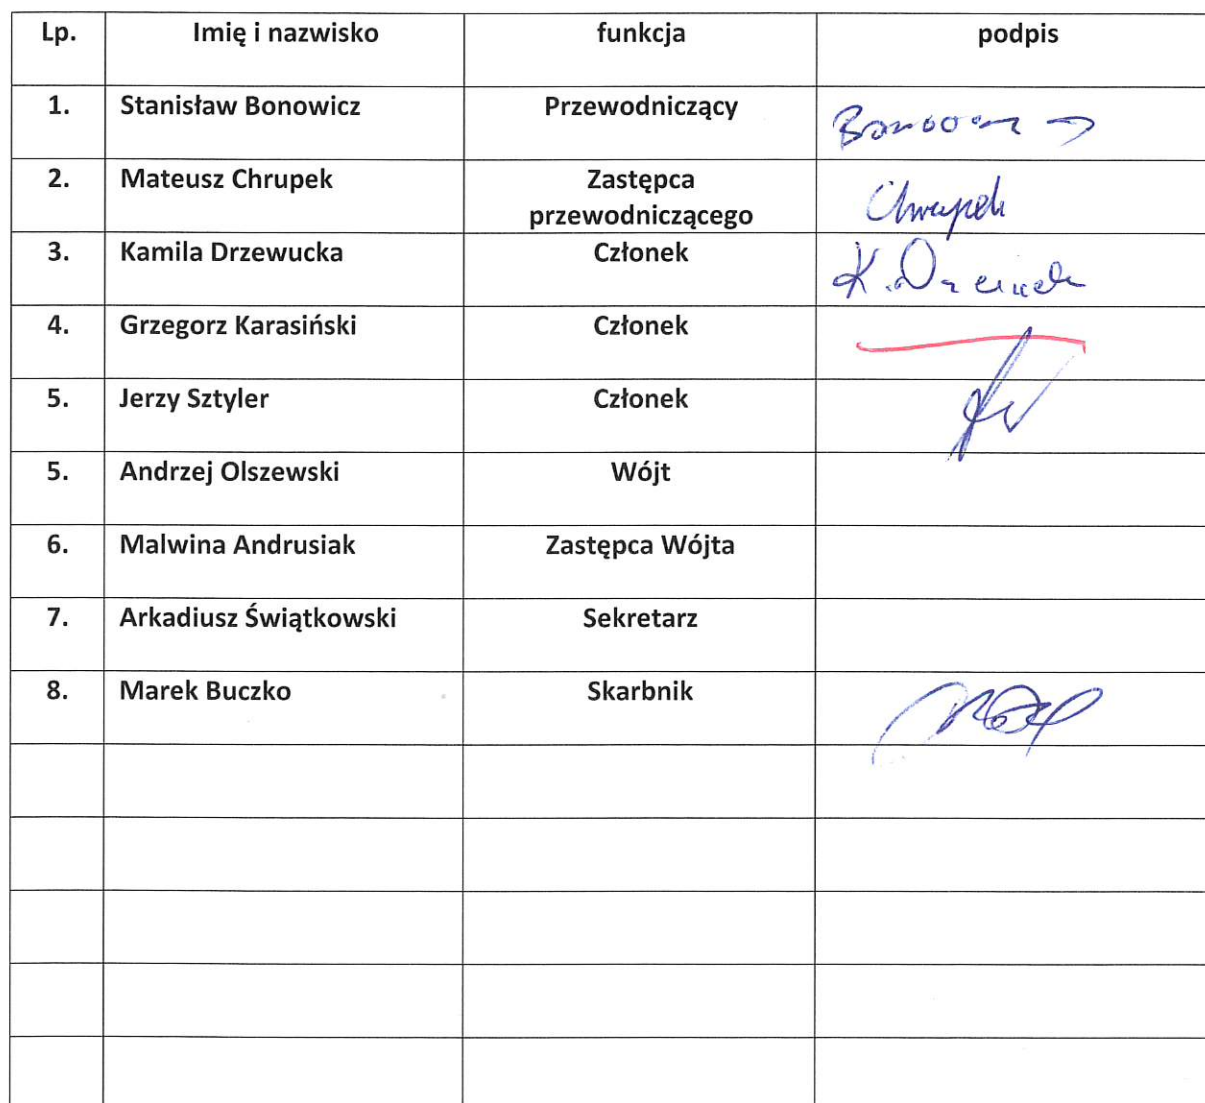 Lp. Imię i nazwisko funkcja podpis
1. Stanisław Bonowicz Przewodniczący
2. Mateusz Chrupek Zastępca przewodniczącego Chrupek
3. Kamila Drzewucka Członek
4. Grzegorz Karasiński Członek
5. Jerzy Sztyler Członek
5. Andrzej Olszewski Wójt
6. Malwina Andrusiak Zastępca Wójta
7. Arkadiusz Świątkowski Sekretarz
8. Marek Buczko Skarbnik